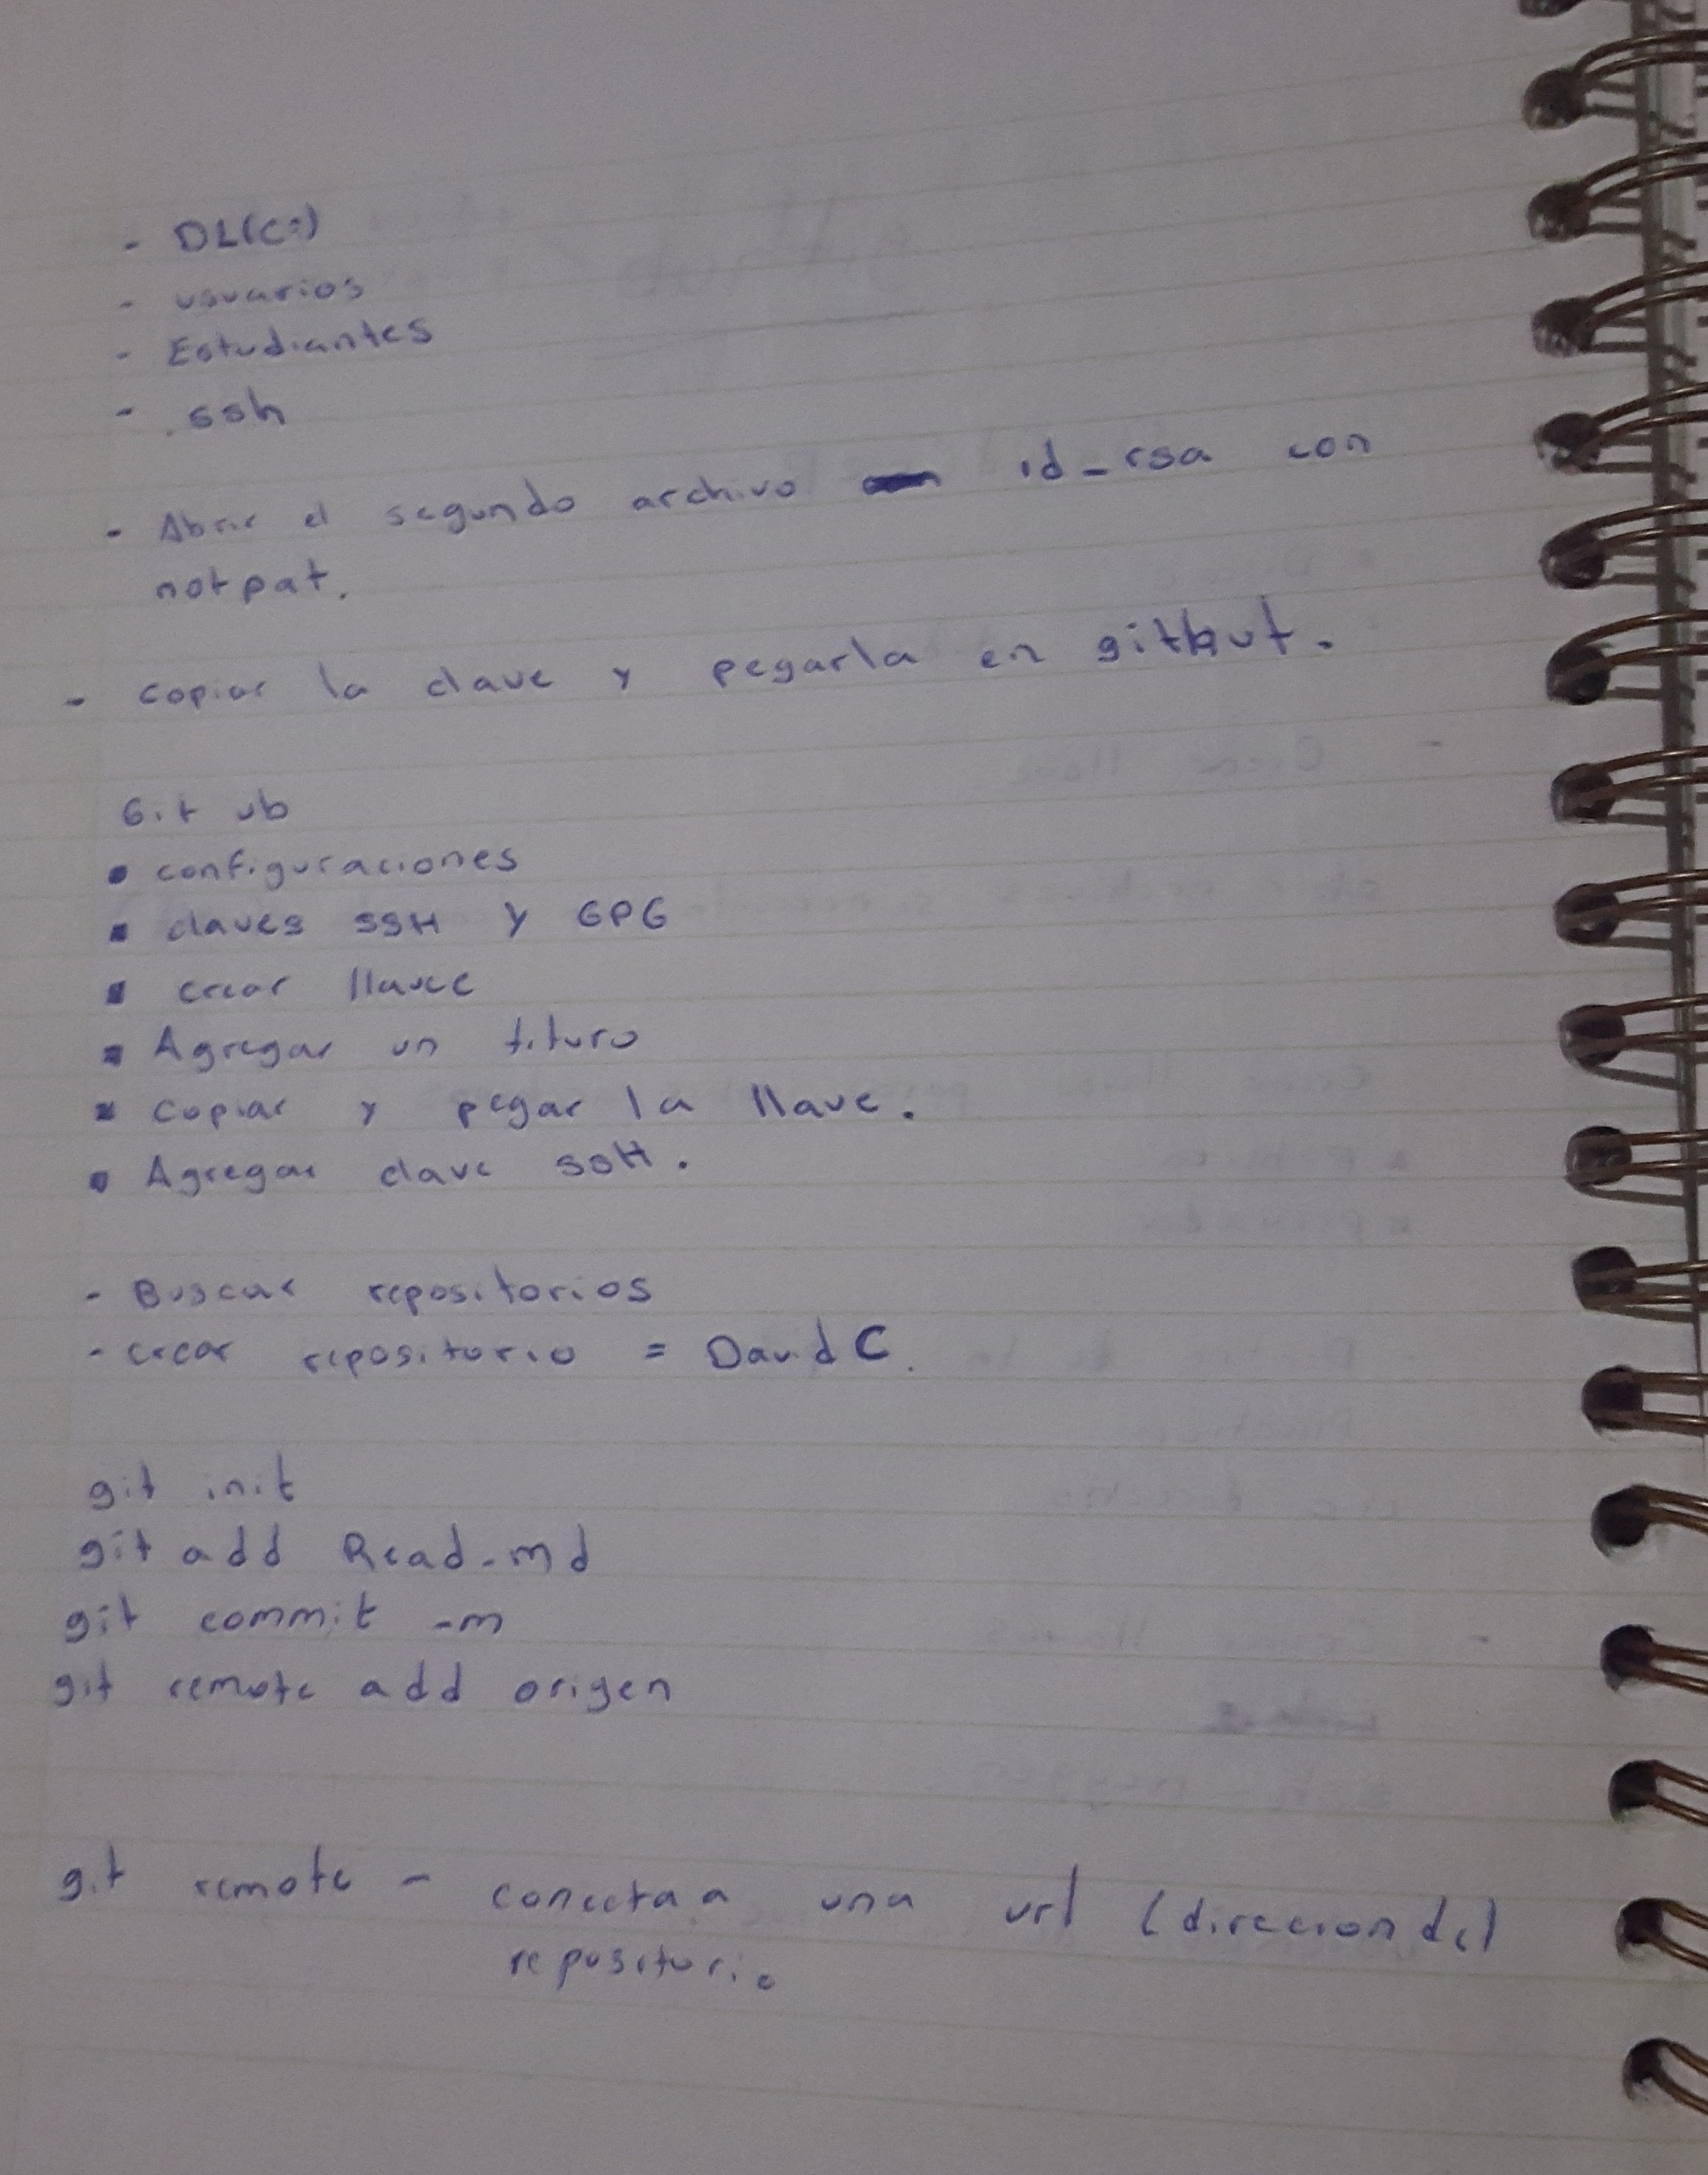 - DL(C:)
- usuarios
- Estudiantes
- .ssh
- Abrir el segundo archivo id_rsa con
notpat.
- copiar la clave y pegarla en githut.
Git ub
• configuraciones
• claves SSH y GPG
• crear llave
• Agregar un tituro
• copiar y pegar la llave.
• Agregar clave SSH.
- Buscar repositorios
- crear repositorio = David C.
git init
git add Read.md
git commit -m
git remote add origen
git remote - conecta a una url (direcion del)
repositorio